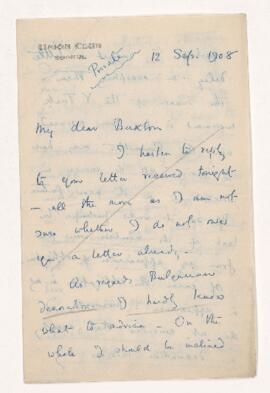 UNION CLUB
Private
12 Sep. 1908
My dear Buxton
I hasten to reply
to your letter received tonight
- all the more as I am not
sure whether I do not owe
you a letter already.
As regards Bulgarian
decorations I hardly know
what to advise - On the
whole I should be inclined